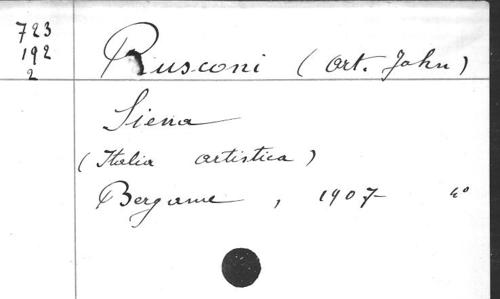 723
192
2
Rusconi (Art. Jahn)
Siena
(Italia artistica)
Bergame, 1907 4º